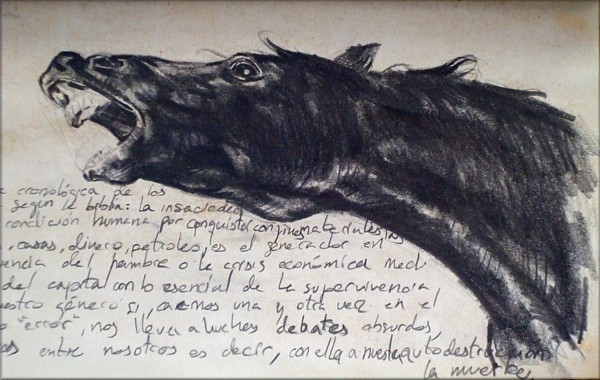 cronológica de los
según la biblia: la insaciedad
condición humana por conquistar con
, casas, dinero, petroleo, es el generador en
del hambre o la crisis económica
del capital con lo esencial de la supervivencia,
género si, caemos una y otra vez en el
"error", nos lleva a luchas debates absurdos,
entre nosotros es decir, con ella a nuestra autodestruccion
la muerte,